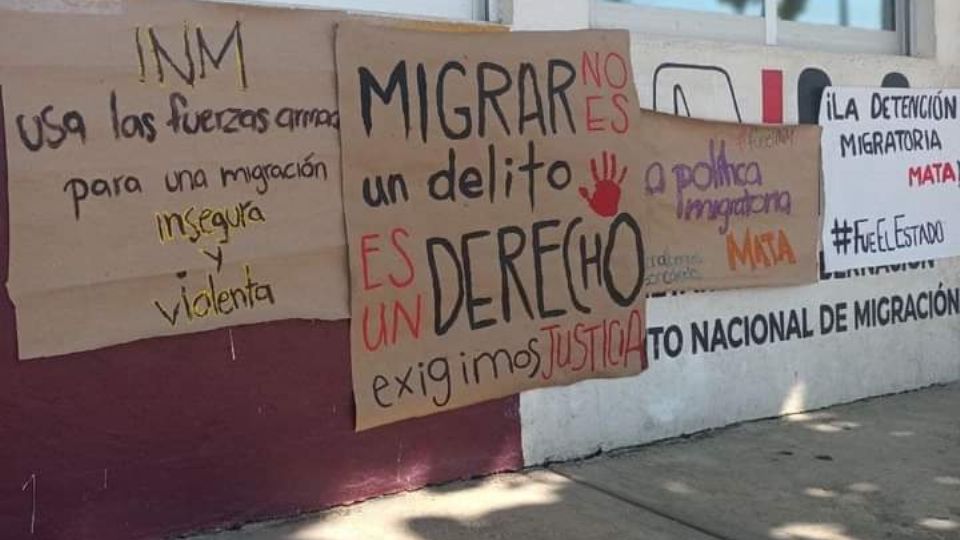 INM
usa las fuerzas armad
para una migración
insegura
y
violenta
MIGRAR NO ES
un delito
ES UN DERECHO
exigimos JUSTICIA
a política
migratoria
MATA
¡LA DETENCIÓN
MIGRATORIA
MATA!
#FUEELESTADO
TO NACIONAL DE MIGRACIÓN